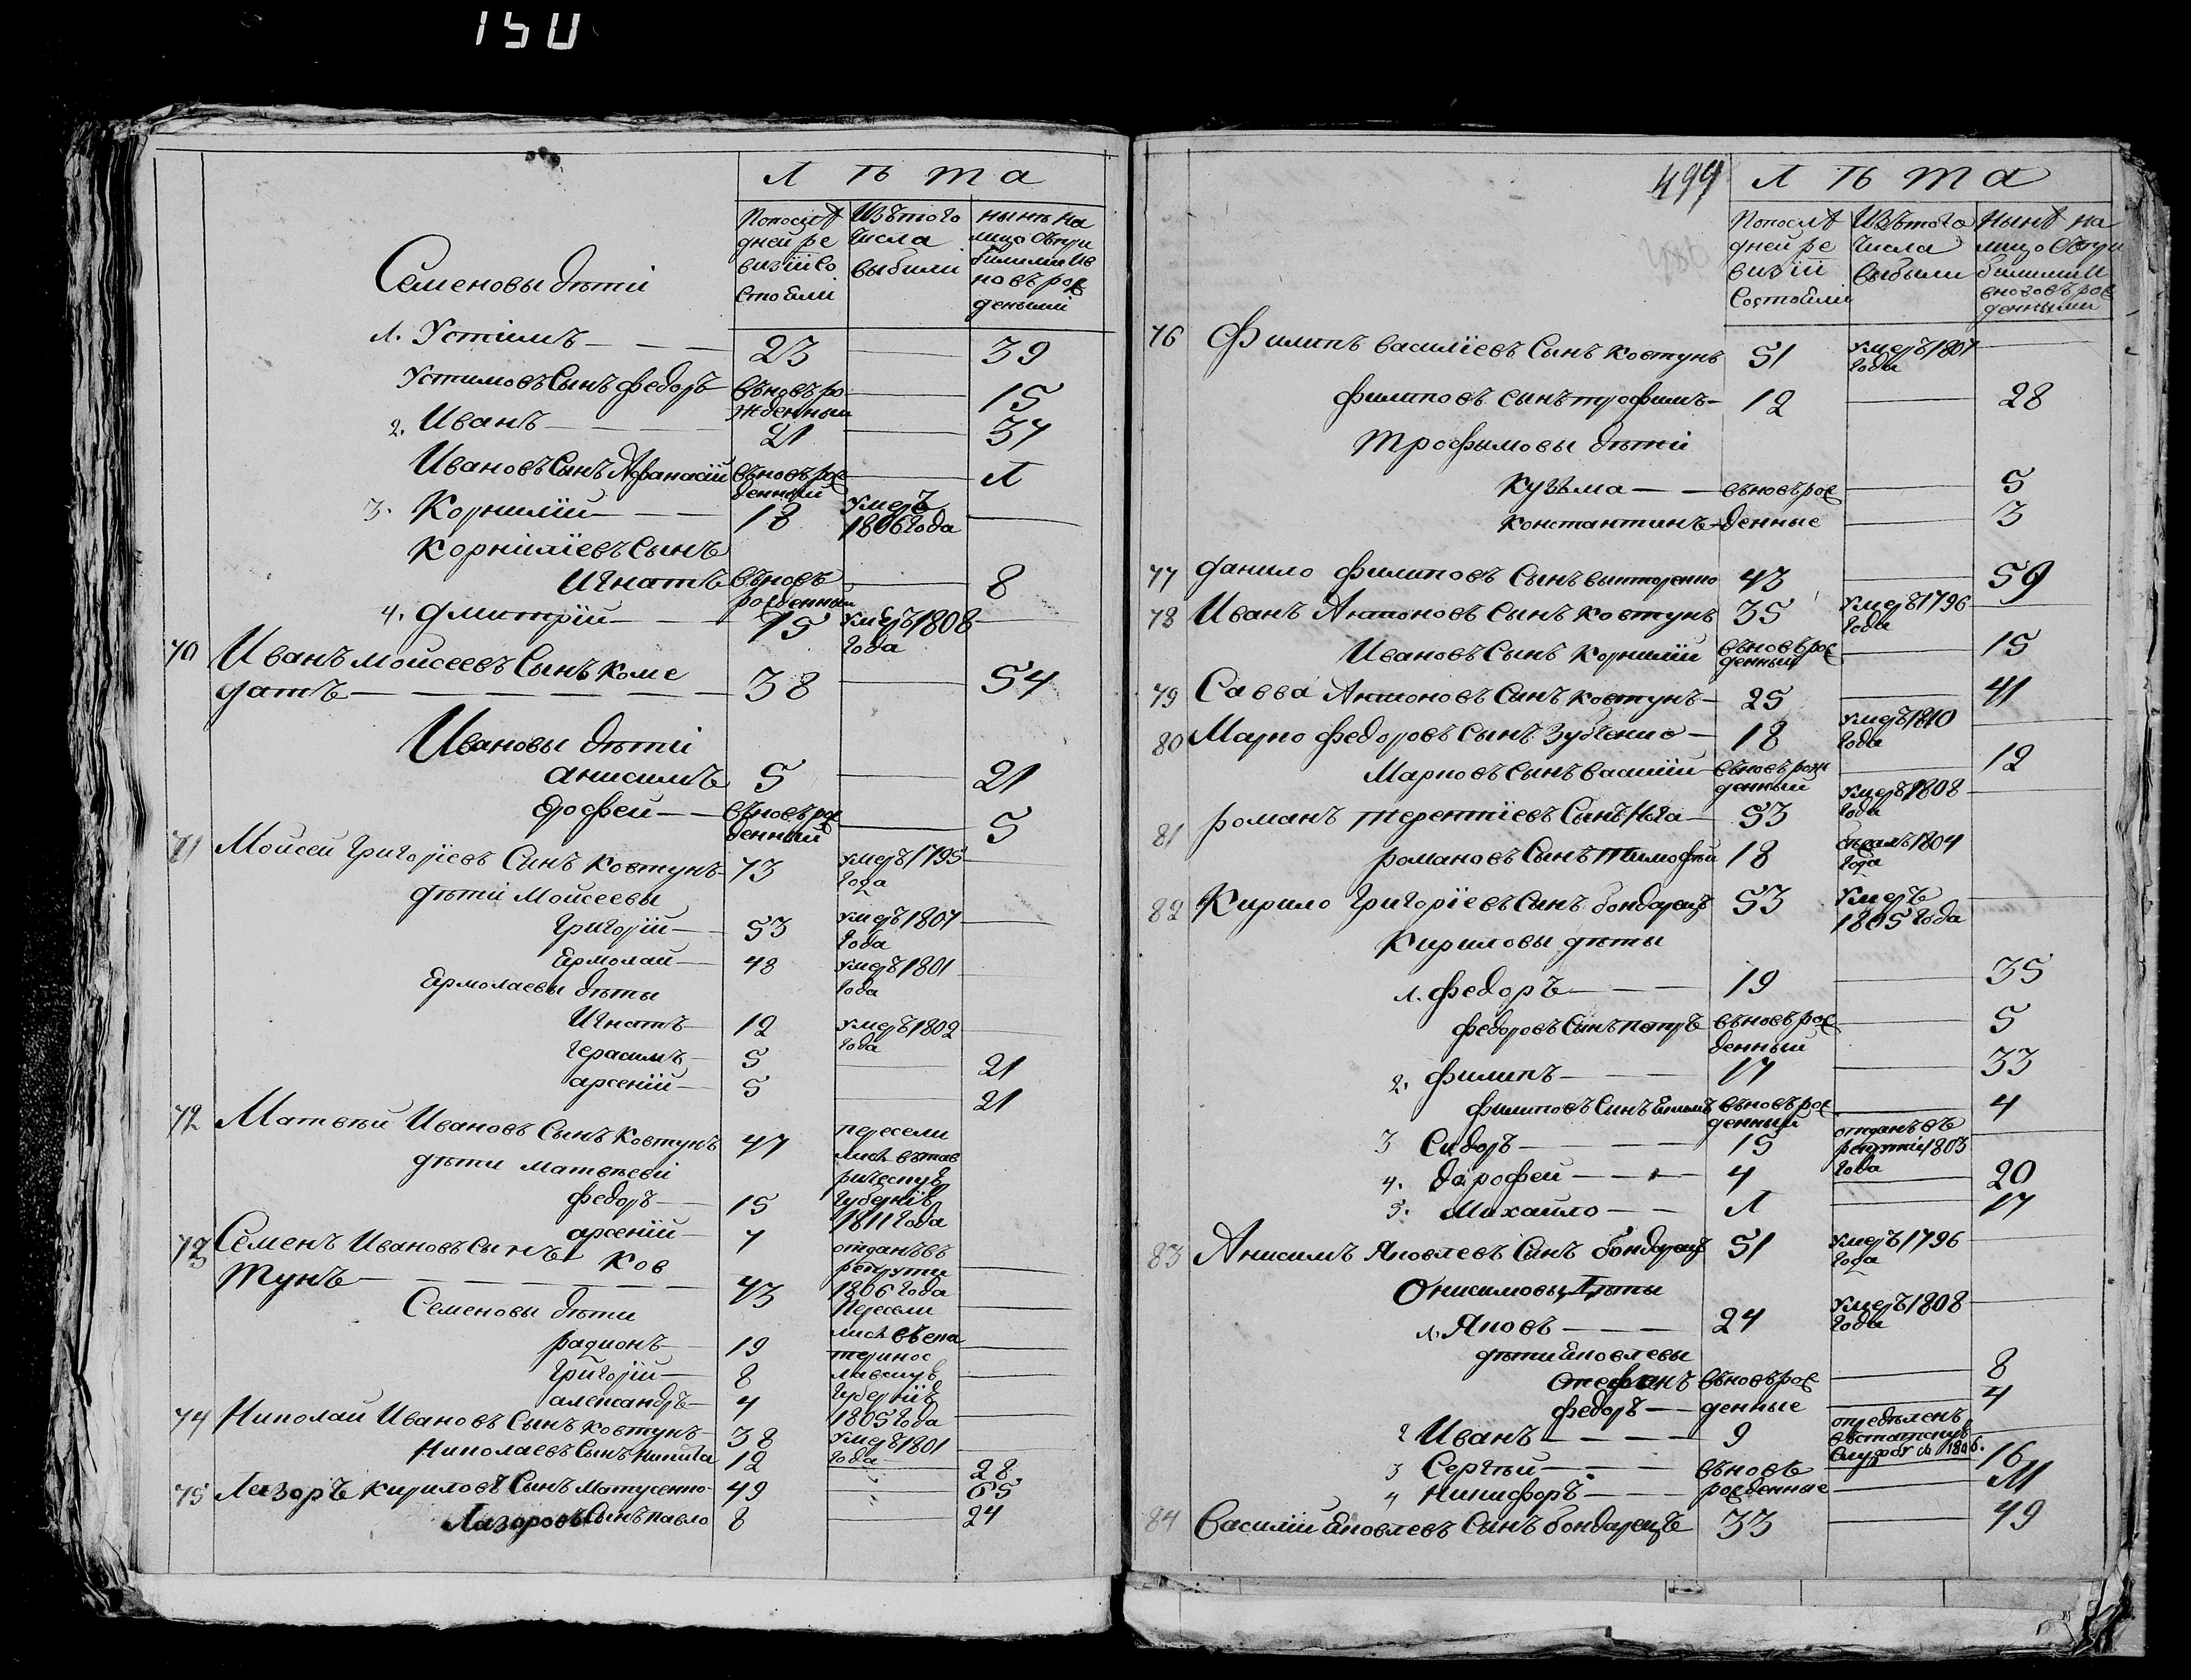 150
Л Ѣ та
По послѣ
дней ре
визіи со
стояли
Изъ того
числа
выбыли
нынѣ на
лицо съ при
былыми и в
новь рож
деными
Семеновы дѣти
1. Устимъ 23 39
Устимовъ Сынъ Федоръ въновь ро
жденный 15
2. Иванъ 21 37
Ивановъ Сынъ Афанасій въновь рож
денный 1
3. Корнилій 18 умеръ
1806 года
Корниліевъ Сынъ
Игнатъ въновь
рожденный 8
4. Дмитрій 15 умеръ 1808
года
70 Иванъ Моисеевъ Сынъ Коме
датъ 38 54
Ивановы дѣти
анисимъ 5 21
дофей въновь рож
денный 5
71 Моисей Григоріевъ Сынъ Ковтунъ 73 умеръ 1795
года
дѣти Моисеевы
Григорій 53 умеръ 1807
года
Ермолай 48 умеръ 1801
года
Ермолаевы дѣты
Игнатъ 12 умеръ 1802
года
Герасимъ 5 21
арсеній 5 21
72 Матвѣй Ивановъ Сынъ Ковтунъ 47 пересели
лись въ тав
рическую
губернію
1811 года
дѣти Матвѣеві
федоръ 15
арсеній 7 отданъ въ
рекруты
1806 года
73 Семенъ Ивановъ Сынъ Ков
тунъ 43 Пересели
лись въ ека
теринос
лавскую
губернію
1805 года
Семеновы дѣти
радионъ 19
Григорій 8
александръ 4
74 Николай Ивановъ Сынъ Ковтунъ 38 умеръ 1801
года
Николаевъ Сынъ Никита 12 28
75 Лазоръ Кириловъ Сынъ Матусенко 49 65
Лазоровъ Сынъ Павло 8 24
499
Л Ѣ та
По послѣ
дней ре
визіи
состояли
Изъ того
числа
выбыли
Нынѣ на
лицо съ при
былыми и
вновь рож
денными
76 Филипъ Василіевъ Сынъ Ковтунъ 51 умеръ 1807
года
Филиповъ сынъ трофимъ 12 28
Трофымовы дѣти
Кузьма въновь рож 5
Константинъ денные 3
77 Данило Филиповъ Сынъ Викторенко 43 59
78 Иванъ Антоновъ Сынъ Ковтунъ 35 умеръ 1796
года
Ивановъ Сынъ Корнилій въновь рож
денный 15
79 Савва Антоновъ Сынъ Ковтунъ 25 41
80 Марко Федоровъ Сынъ Зубченко 18 умеръ 1810
года
Марковъ Сынъ Василій въновь рож
денный 12
81 Романъ Терентіевъ Сынъ Нога 53 умеръ 1808
года
романовъ Сынъ Тимофѣй 18 бежалъ 1804
года
82 Кирило Григоріевъ Сынъ бондарецъ 53 умеръ
1805 года
Кириловы дѣты
1. федоръ 19 35
федоровъ Сынъ петръ въновь рож
денный 5
2. филипъ 17 33
филиповъ Сынъ въновь рож
денный 4
3 Сидоръ 15 отданъ въ
рекруты 1803
года
4. Дорофей 4 20
5. Михайло 1 17
83 Анисимъ Яковлевъ Сынъ бондарецъ 51 умеръ 1796
года
Онисимовы Дѣты
1. Яковъ 24 умеръ 1808
года
дѣти Яковлевы
Стефанъ въновь рож 8
федоръ денные 4
2 Иванъ 9 опредѣленъ
въ статскую
службу 1806.
3 Сергѣй въновь 16
4 Никифоръ рожденные 11
84 Василій Яковлевъ Сынъ бондарецъ 33 49